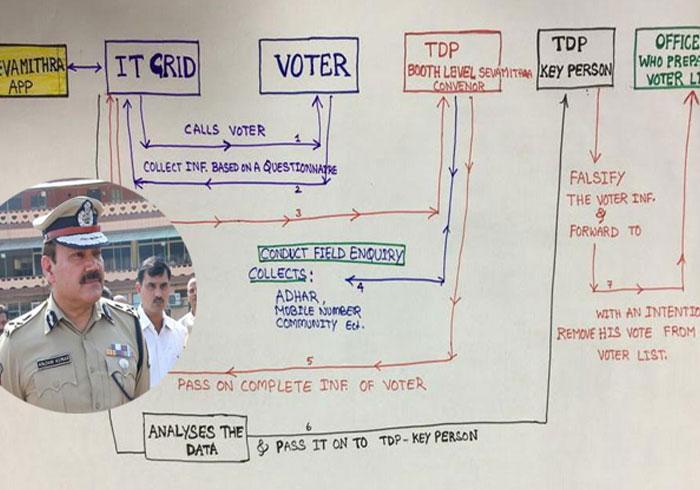 SEVAMITHRA
APP
IT GRID
VOTER
TDP
BOOTH LEVEL SEVAMITHRA
CONVENOR
TDP
KEY PERSON
OFFICE
WHO PREPA
VOTER LI
CALLS VOTER
1
COLLECT INF. BASED ON A QUESTIONNAIRE
2
3
CONDUCT FIELD ENQUIRY
COLLECTS:
4
ADHAR,
MOBILE NUMBER
COMMUNITY Ect.
FALSIFY
THE VOTER INF.
&
FORWARD TO
7
WITH AN INTENTIO
REMOVE HIS VOTE FROM
VOTER LIST.
5
PASS ON COMPLETE INF. OF VOTER
ANALYSES THE
DATA
6
& PASS IT ON TO TDP-KEY PERSON
ANJANI KUMAR